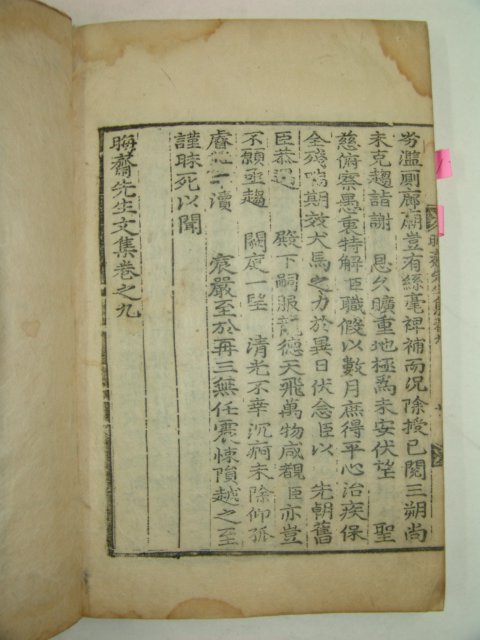 劣濫厠廊廟豈有絲毫裨補而況除授已閱三朔尚
未克趨詣謝 恩久曠重地極爲未安伏望 聖
慈俯察愚衷特解臣職假以數月庶得平心治疾保
全殘喘期效犬馬之力於異日伏念臣以 先朝舊
臣恭遇 殿下嗣服龍德天飛萬物咸覩臣亦豈
不願亟趨 闕庭一望 清光不幸沉痾未除仰孤
睿 瀆 宸嚴至於再三無任震悚隕越之至
謹昧死以聞
晦齋先生文集卷之九